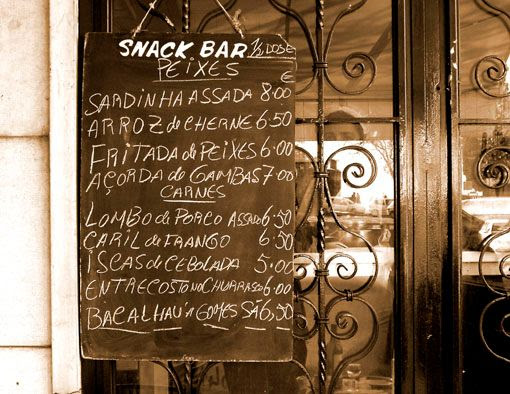 SNACK BAR ½ DOSE
PEIXES €
SARDINHA ASSADA 8.00
ARROZ de CHERNE 6.50
FRITADA de PEIXES 6.00
AÇORDA de GAMBAS 7.00
CARNES
LOMBO de PORCO ASSADO 6.50
CARIL de FRANGO 6.50
ISCAS de CEBOLADA 5.00
ENTRECOSTO NO CHURRASCO 6.00
BACALHAU À GOMES SÁ 6,50